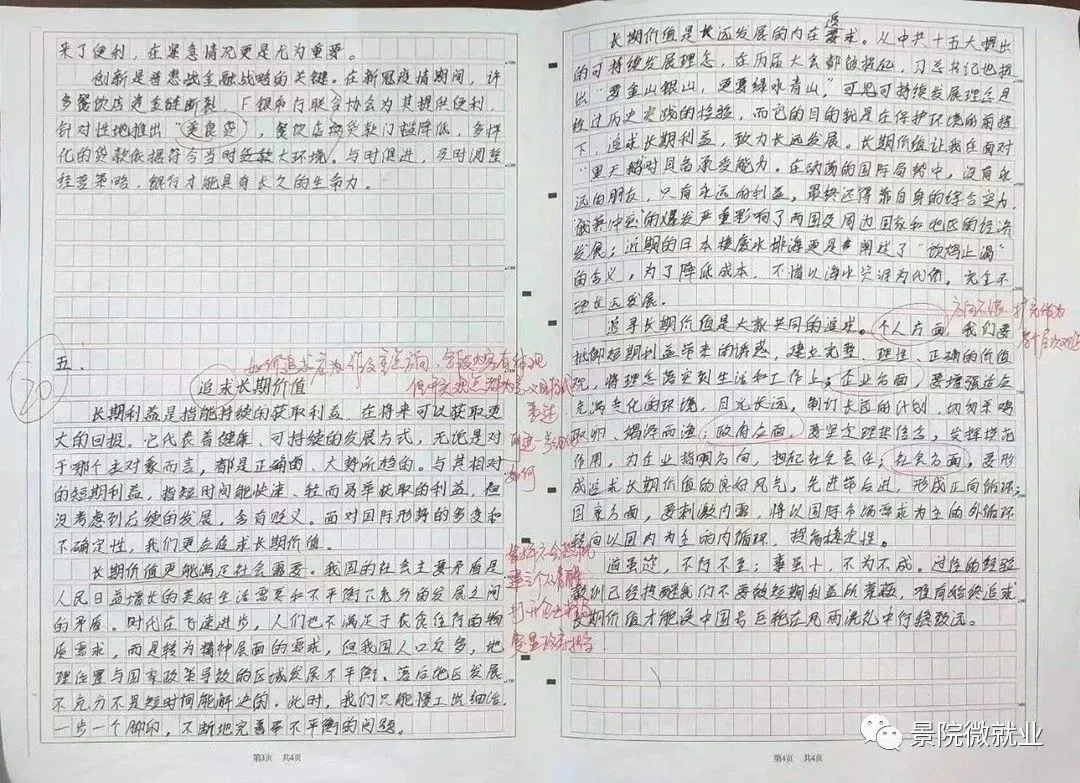 来了便利，在紧急情况更是尤为重要。
创新是普惠金融战略的关键。在新冠疫情期间，许
多餐饮店资金链断裂，F银和行联合协会为其提供便利，
针对性地推出"美食贷"，餐饮店 贷款门槛降低，多怀
化的贷款依据符合当时 大环境。与时俱进，及时调整
经营策略，银行才能具有长久的生命力。
五、
20
追求长期价值
长期利益是指能持续的获取利益，在将来可以获取更
大的回报。它代表着健康、可持续的发展方式，无论是对
于哪个主对象而言，都是正确的、大势所趋的。与其相对
的短期利益，指短时间能快速、轻而易举获取的利益，但
没考虑到后续的发展，含有贬义。面对国际形势的多变和
不确定性，我们更应追求长期价值。
长期价值更能满足社会需要。我国的社会主要矛盾是
人民日益增长的美好生活需要和不平衡不充分的发展之间
的矛盾。时代在飞速进步，人们也不满足于衣食住行的物
质需求，而是转为精神层面的需求，但我国人口众多，地
理位置与国家政策导致的区域发展不平衡、落后地区发展
不充分不是短时间能解决的。此时，我们只能慢工出细活，
一步一个脚印，不断地完善不平衡的问题。
第3页 共4页
长期价值是长远发展的内在要求。从中共十五大提出
的可持续发展理念，在历届大会都值提及，习总书记也提
出"要金山银山，更要绿水青山。"可见可持续发展理念是
经过历史实践的检验，而它的目的就是在保护环境的前提
下，追求长期利益，致力长远发展。长期价值让我在面对
"黑天鹅"时具备承受能力。在动荡的国际局势中，没有永
远的朋友，只有永远的利益，最终还得靠自身的综合实力。
俄乌冲突的爆发严重影响了两国及周边国家和地区的经济
发展；近期的日本核废水排海更是阐述了"饮鸩止渴"
的含义，为了降低成本，不惜以海水资源为代价，完全不
顾长远发展。
追寻长期价值是大家共同的追求。个人方面，我们要
抵御短期利益带来的诱惑，建立完整、理性、正确的价值
观，将理念落实到生活和工作上；企业方面，要增强适应
充满变化的环境，目光长远，制订长远的计划，切勿杀鸡
取卵、竭泽而渔；政府方面，要坚定理想信念，发挥模范
作用，为企业指明方向，担起社会责任；社会方面，要形
成追求长期价值的良好风气，先进带后进，形成正向循环；
国家方面，要刺激内需，将以国际市场需求为主的外循环
转向以国内为主的内循环，提高稳定性。
道虽迩，不行不至；事虽小，不为不成。过往的经验
教训已经提醒我们不要被短期利益所蒙蔽，唯有始终追求
长期价值才能使中国号巨轮在风雨洗礼中行稳致远。
第4页 共4页
景院微就业